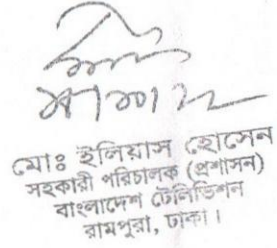 মোঃ ইলিয়াস হোসেন
সহকারী পরিচালক (প্রশাসন)
বাংলাদেশ টেলিভিশন
রামপুরা, ঢাকা।